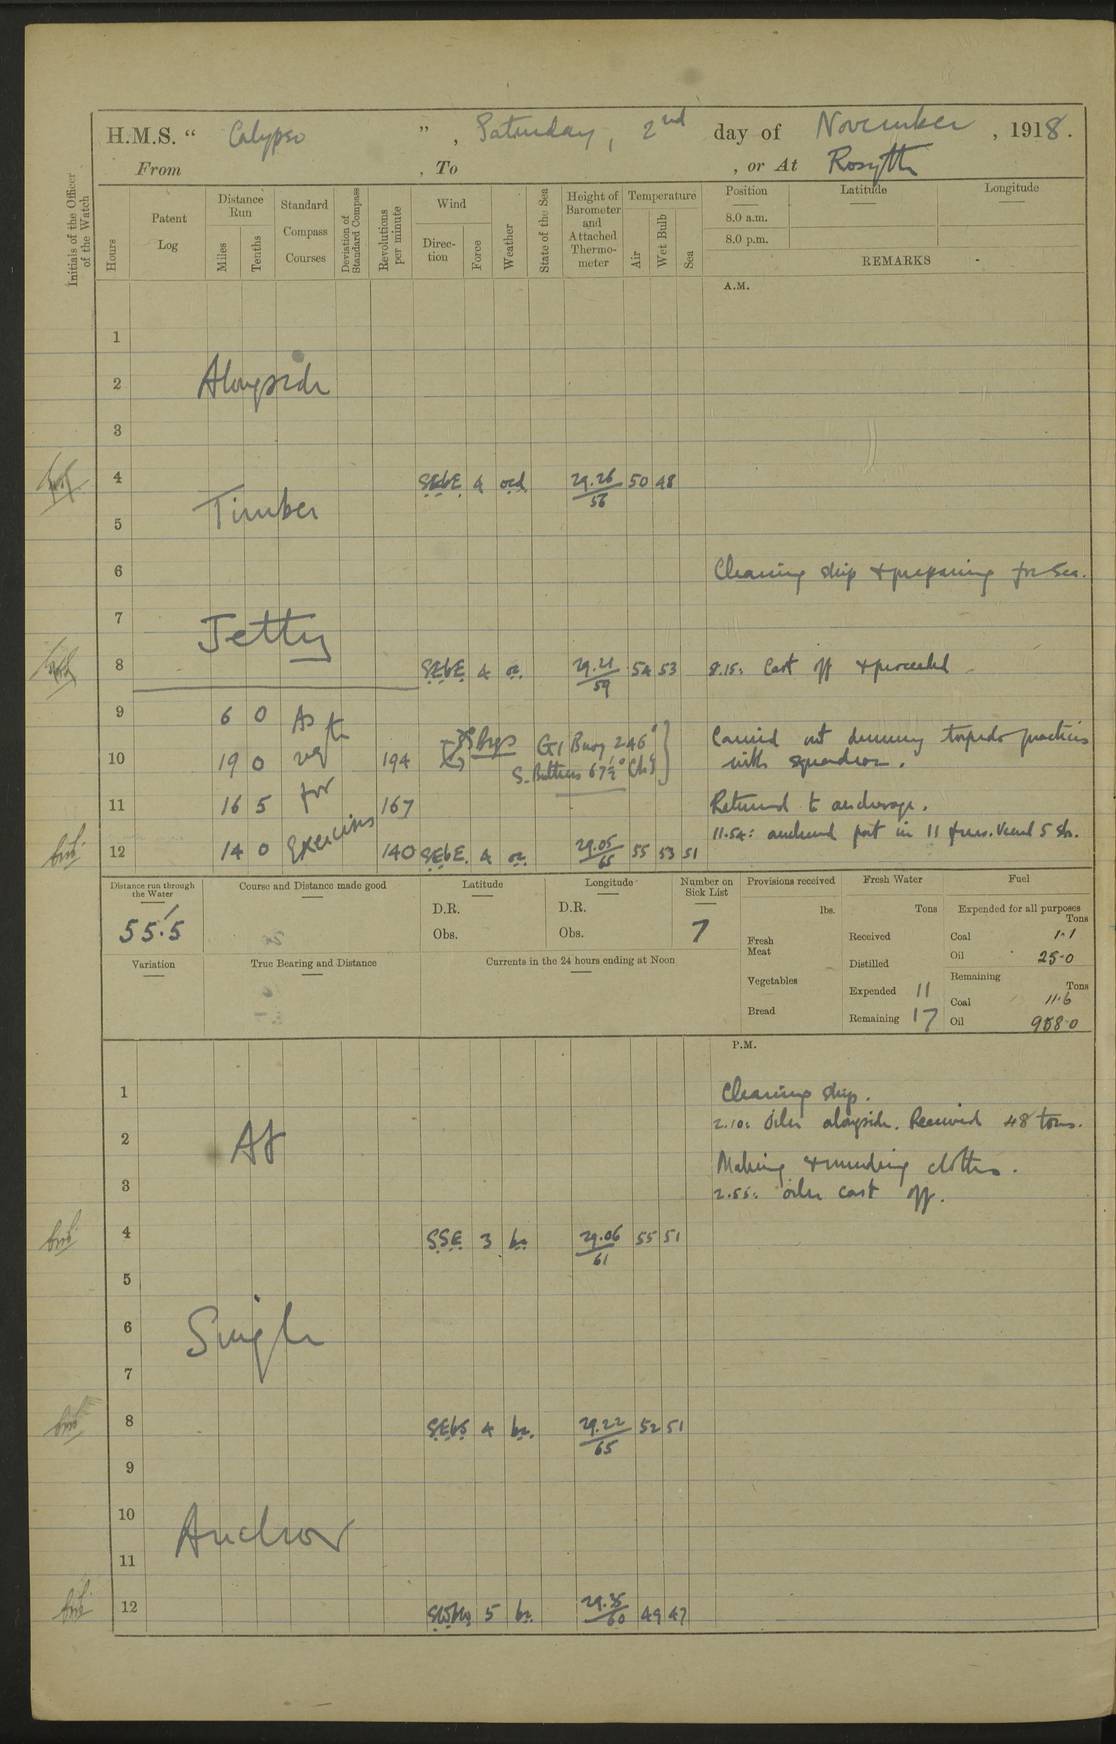 H.M.S. “ Calypso ” , Saturday, 2nd day of November , 1918.
From , To , or At Rosyth
Initials of the Officer of the Watch
Hours
Patent Log
Distance Run
Miles
Tenths
Standard Compass Courses
Deviation of Standard Compass
Revolutions per minute
Wind
Direc-tion
Force
Weather
State of the Sea
Height of Barometer and Attached Thermo-meter
Temperature
Air
Wet Bulb
Sea
Position Latitude Longitude
8.0 a.m.
8.0 p.m.
REMARKS
A.M.
1
2 Alongside
3
4 SEbE 4 ocd 29.26/56 50 48
5 Timber
6 Cleaning ship & preparing for Sea.
7 Jetty
8 SEbE 4 oc. 29.21/59 54 53 8.15: Cast off & proceeded
9 6 0 As
10 19 0 req te 194 G1 Buoy 246° Carried out dummy torpedo practices
with squadron.
11 16 5 for 167 Returned to anchorage.
11.54: anchored port in 11 fms. Veered 5 sh.
12 14 0 Exercises 140 SEbE. 4 oc. 29.05/65 55 53 51
Distance run through the Water
55.5
Course and Distance made good
Latitude
D.R.
Obs.
Longitude
D.R.
Obs.
Number on Sick List
7
Variation
True Bearing and Distance
Currents in the 24 hours ending at Noon
Provisions received
lbs.
Fresh Meat
Vegetables
Bread
Fresh Water
Tons
Received
Distilled
Expended 11
Remaining 17
Fuel
Expended for all purposes
Tons
Coal 1.1
Oil 25.0
Remaining
Tons
Coal 11.6
Oil 958.0
P.M.
1 Cleaning ship.
2.10: Oiler alongside. Received 48 tons.
2 At
Making & mending clothes.
3 2.55: oiler cast off.
4 SSE 3 bc 29.06/61 55 51
5
6 Single
7
8 SEbS 4 bc. 29.22/65 52 51
9
10 Anchor
11
12 5 bc. 29.35/60 49 47